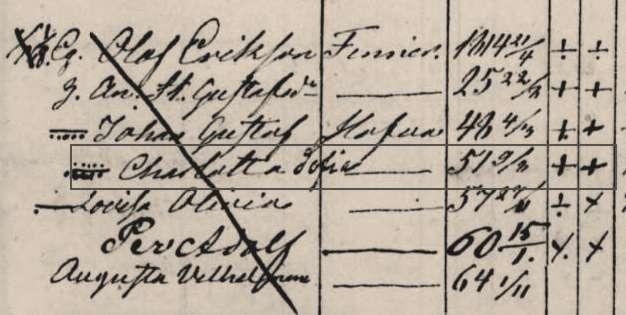 Eg. Olof Erikson 1814 21/4 + +
H. An. St. Gustafsdr 25 22/3 + +
Johan Gustaf 48 4/3 + +
Charlotta Sofia 51 9/3 + +
Lovisa Olivia 57 ÷ +
Per Adolf 60 15/1. × ×
Augusta Vilhelmina 64 1/11